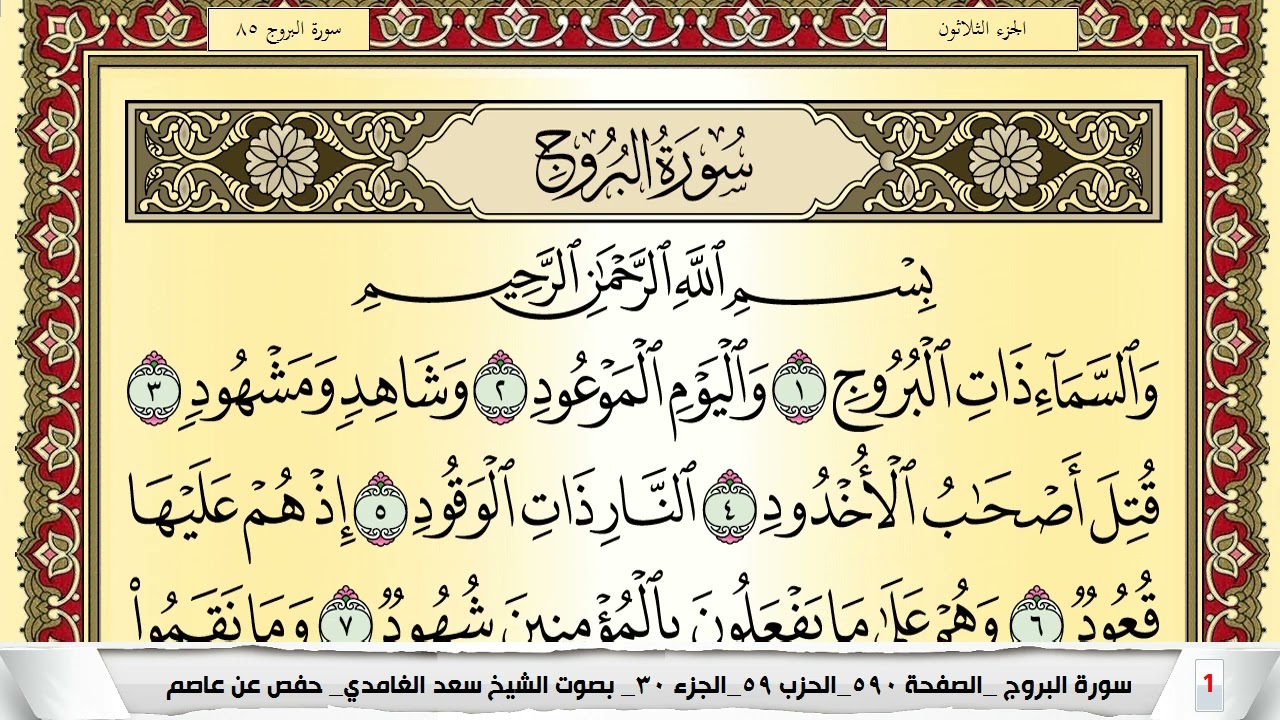 الجزء الثلاثون
سورة البروج ٨٥
سُورَةُ البُرُوجِ
بِسْمِ ٱللَّهِ ٱلرَّحْمَٰنِ ٱلرَّحِيمِ
وَٱلسَّمَآءِ ذَاتِ ٱلْبُرُوجِ ١ وَٱلْيَوْمِ ٱلْمَوْعُودِ ٢ وَشَاهِدٍ وَمَشْهُودٍ ٣
قُتِلَ أَصْحَٰبُ ٱلْأُخْدُودِ ٤ ٱلنَّارِ ذَاتِ ٱلْوَقُودِ ٥ إِذْ هُمْ عَلَيْهَا
قُعُودٌ ٦ وَهُمْ عَلَىٰ مَا يَفْعَلُونَ بِٱلْمُؤْمِنِينَ شُهُودٌ ٧ وَمَا نَقَمُوا۟
سورة البروج _الصفحة ٥٩٠_الحزب ٥٩_الجزء ٣٠_ بصوت الشيخ سعد الغامدي_ حفص عن عاصم
1